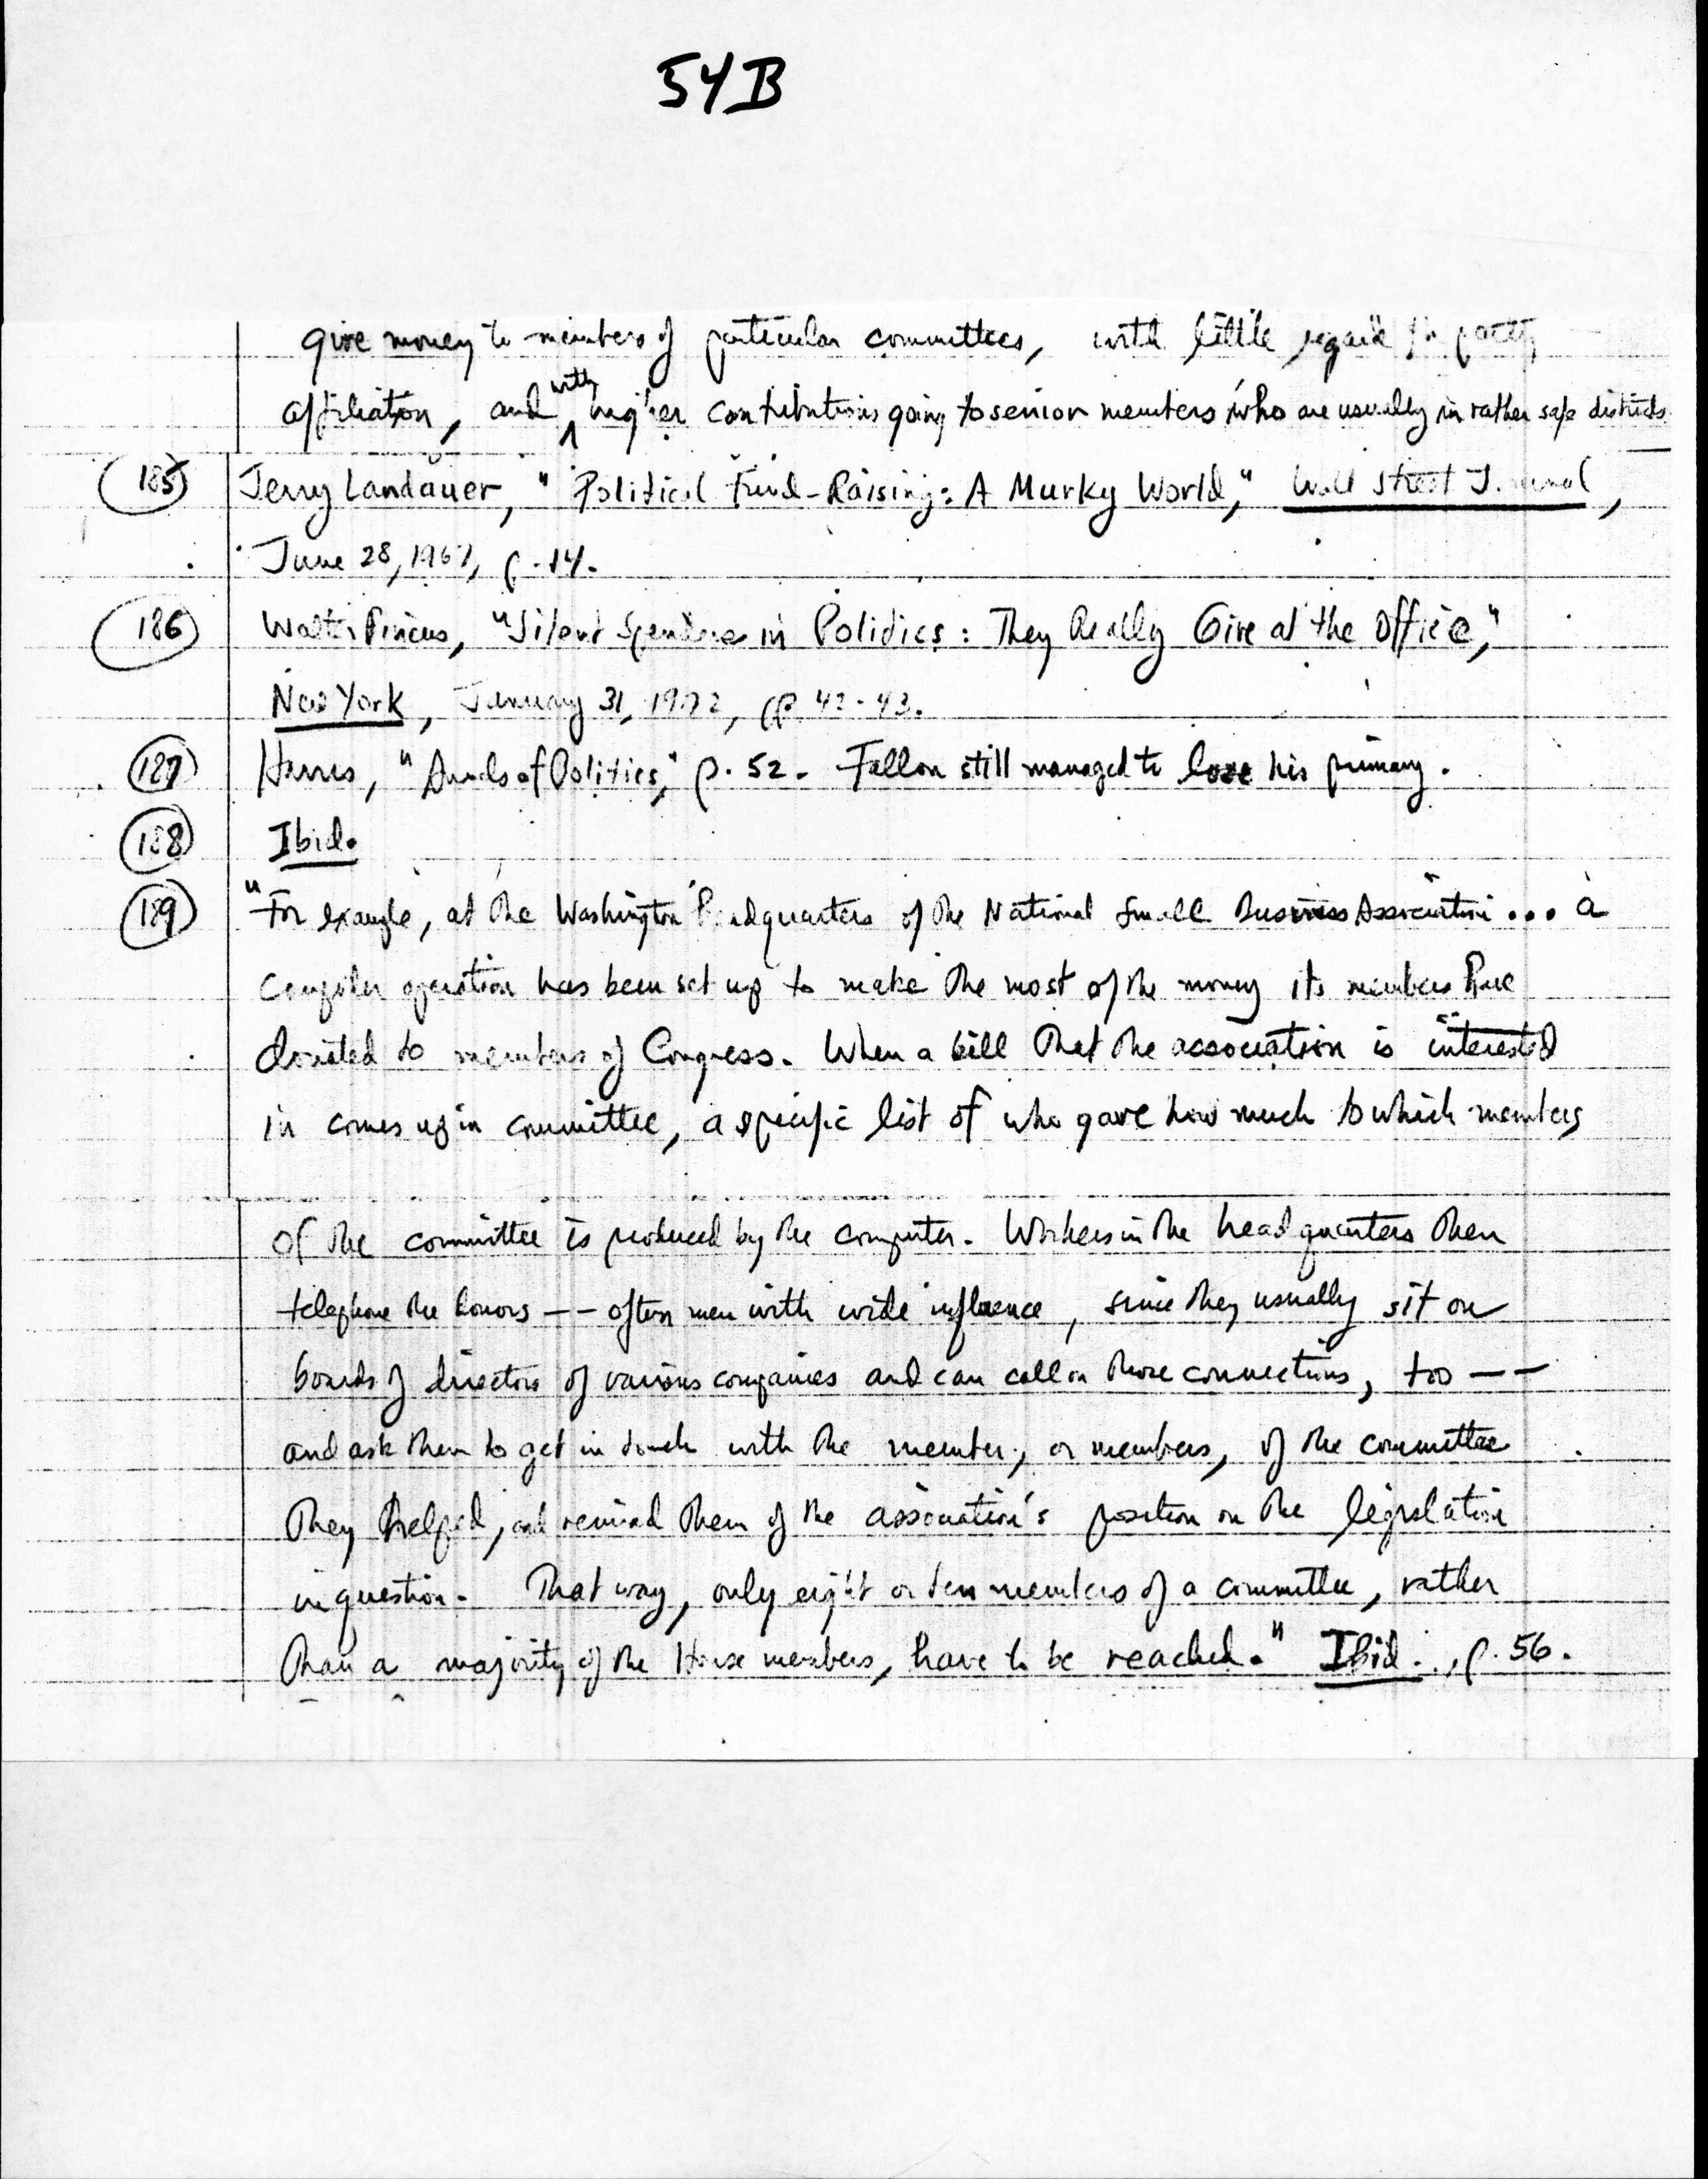 54B
give money to members of particular committees, with little regard for party
affiliation, and with higher contributions going to senior members who are usually in rather safe districts.
185 Jerry Landauer, "Political Fund-Raising: A Murky World," Wall Street Journal,
June 28, 1967, p. 14.
186 Walter Pincus, "Silent Spenders in Politics: They Really Give at the Office,"
New York, January 31, 1972, pp. 42-43.
187 Harris, "Annals of Politics," p. 52. Fallon still managed to lose his primary.
188 Ibid.
189 "For example, at the Washington headquarters of the National Small Business Association... a
computer operation has been set up to make the most of the money its members have
donated to members of Congress. When a bill that the association is interested
in comes up in committee, a specific list of who gave how much to which members
of the committee is produced by the computer. Workers in the headquarters then
telephone the donors -- often men with wide influence, since they usually sit on
boards of directors of various companies and can call on those connections, too --
and ask them to get in touch with the member, or members, of the committee
they helped, and remind them of the association's position on the legislation
in question. That way, only eight or ten members of a committee, rather
than a majority of the House members, have to be reached." Ibid., p. 56.